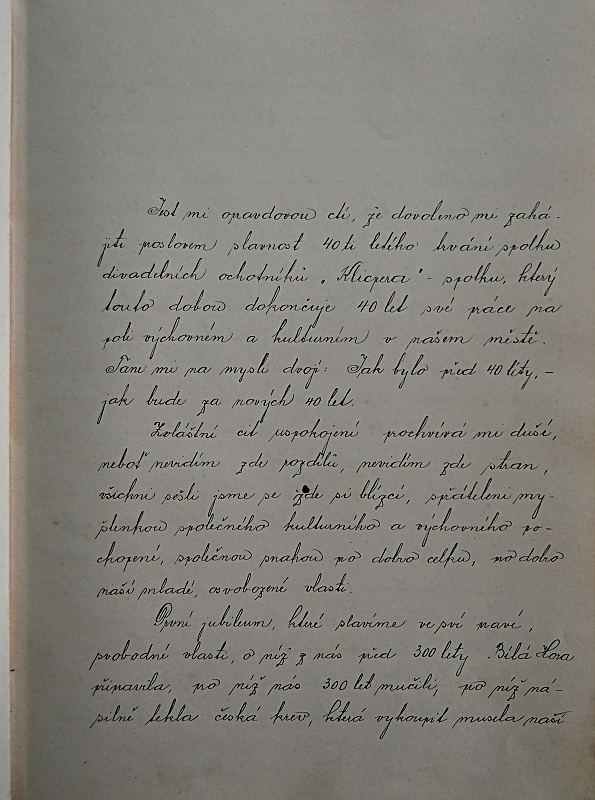 Jest mi opravdovou ctí, že dovoleno mi zahá-
jiti proslovem slavnost 40ti letého trvání spolku
divadelních ochotníků „Klicpera" - spolku, který
touto dobou dokončuje 40 let své práce na
poli výchovném a kulturním v našem městě.
Tane mi na mysli dvojí: Jak bylo před 40 léty, -
jak bude za nových 40 let.
Zvláštní cit uspokojení prochvívá mi duší,
neboť nevidím zde rozdílů, nevidím zde stran,
všichni sešli jsme se zde si blízcí, spřáteleni my-
šlenkou společného kulturního a výchovného po-
chopení, společnou snahou po dobro celku, po dobro
naší mladé, osvobozené vlasti.
První jubileum, které slavíme ve své pravé,
svobodné vlasti, o níž z nás před 300 lety Bílá Hora
připravila, po níž nás 300 let mučili, po níž ná-
silně tekla česká krev, která vykoupit musela naší